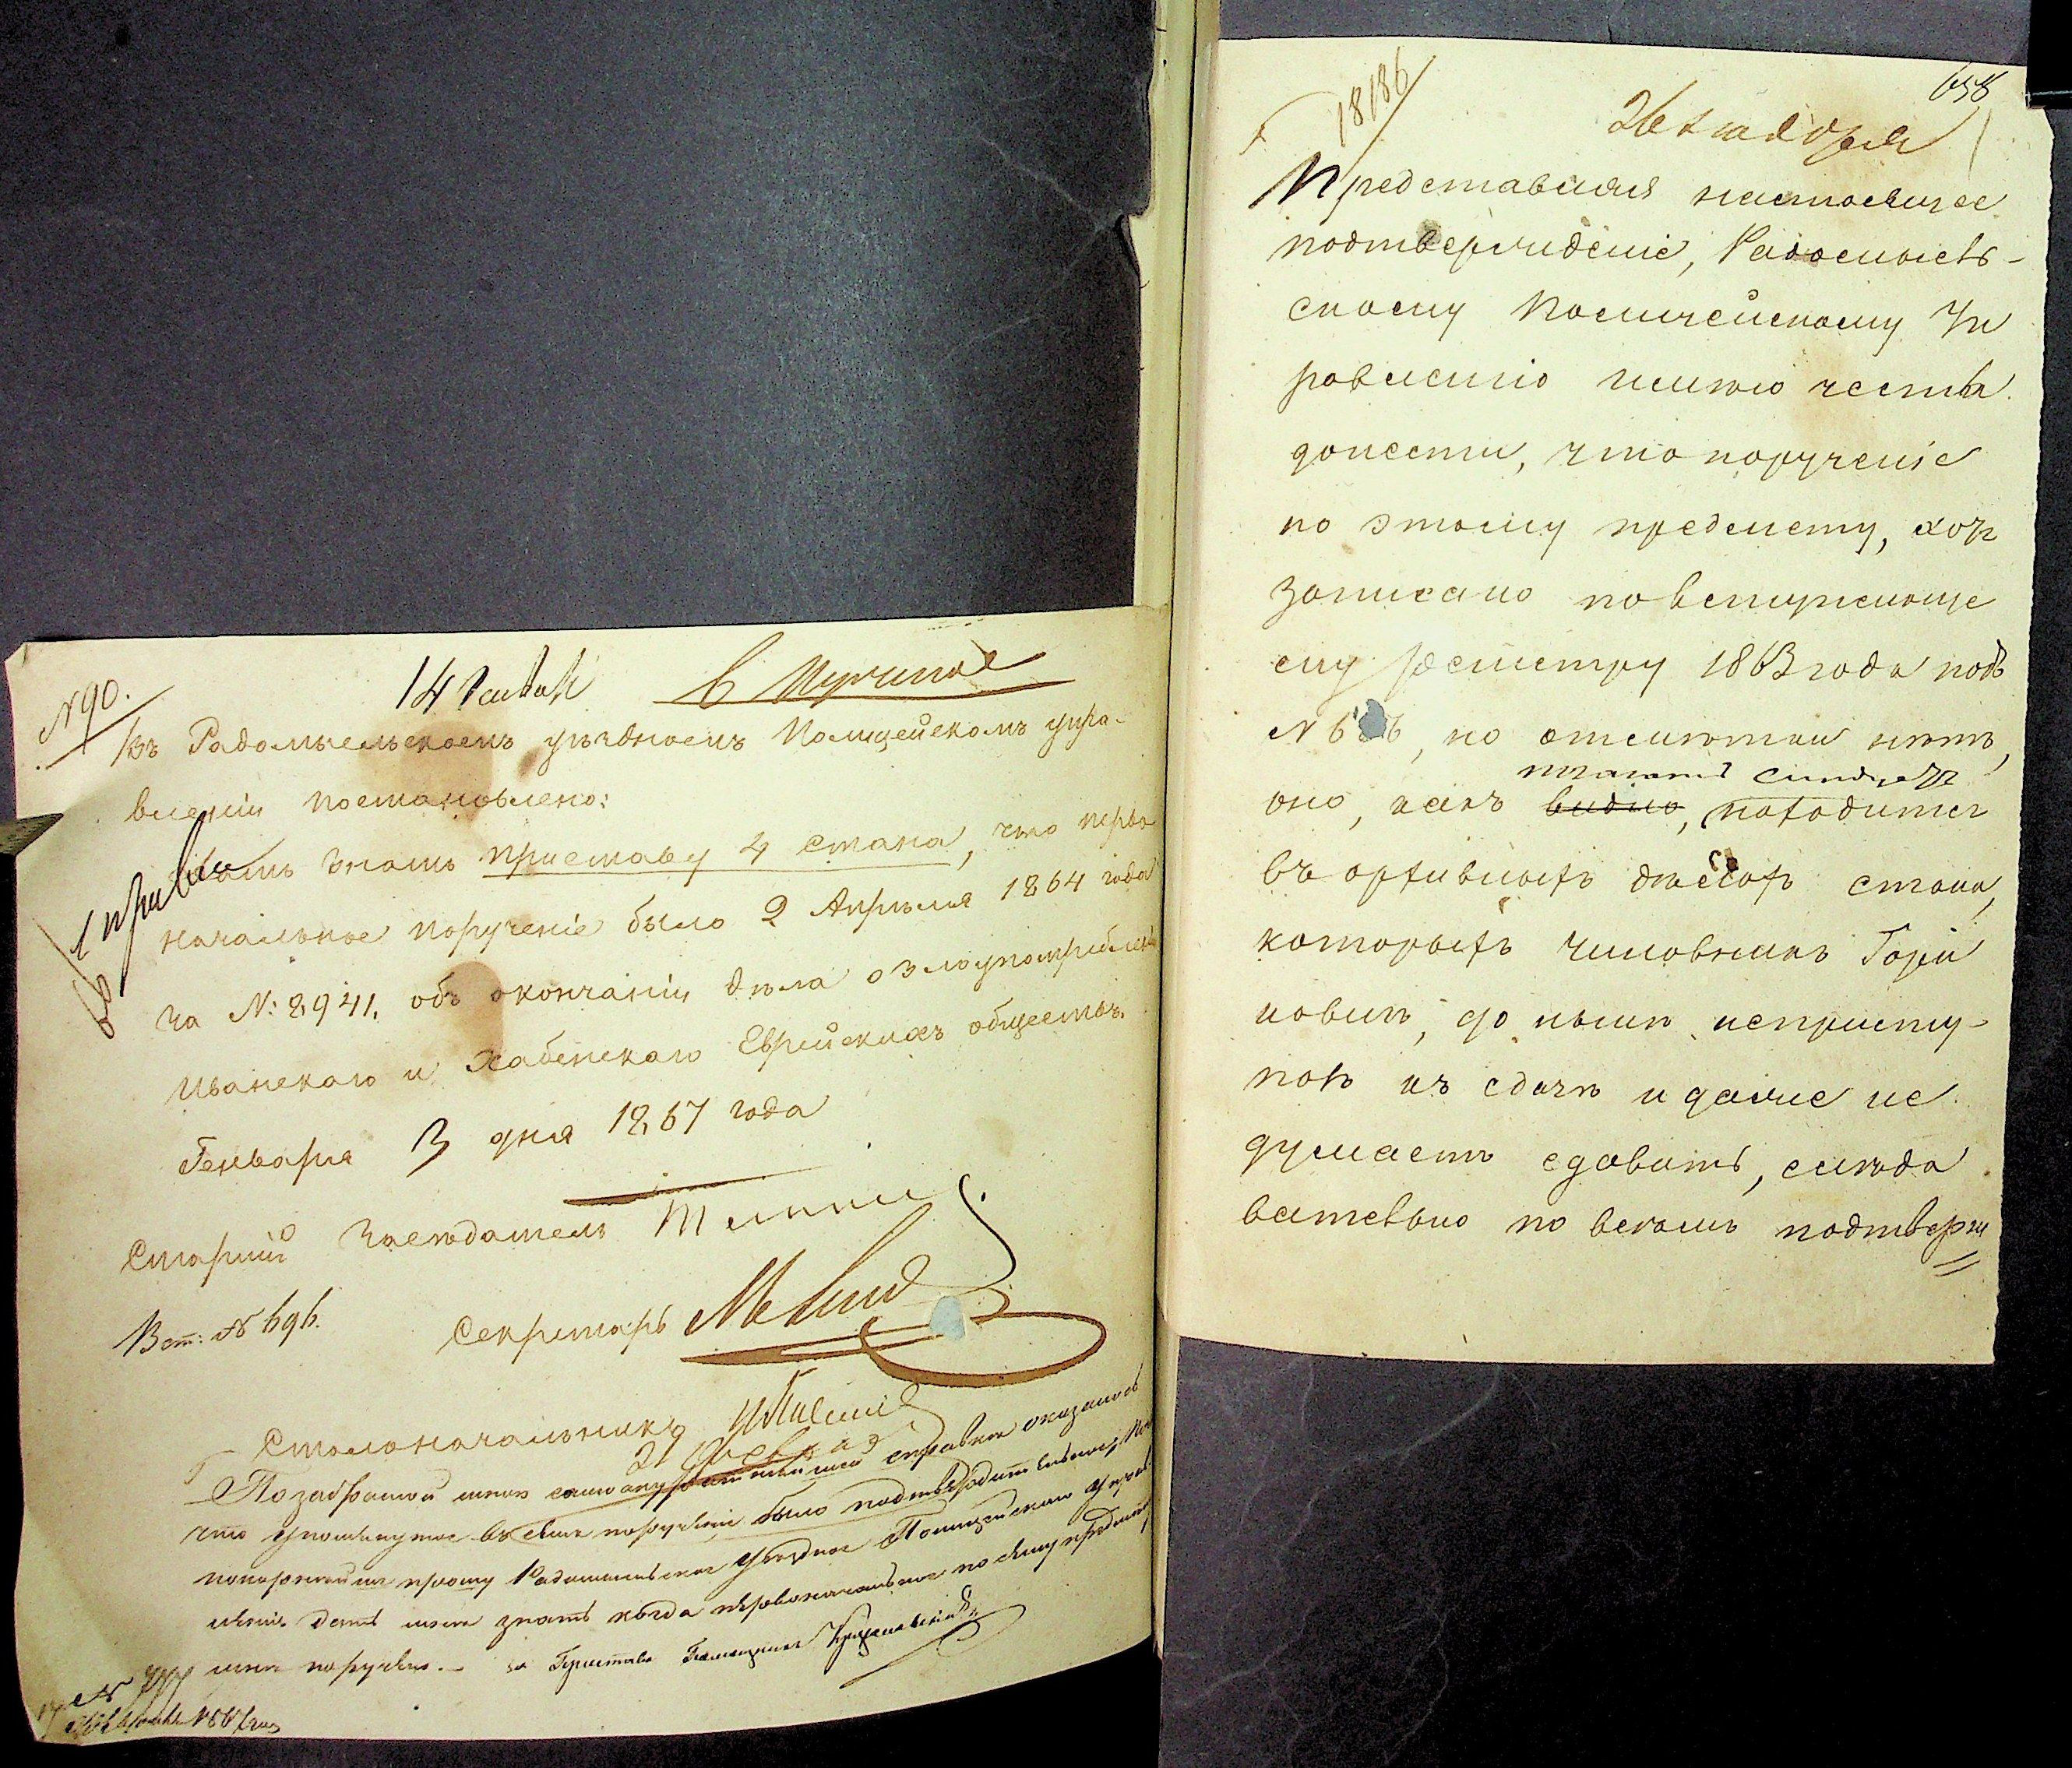 N 90.
14 Генваря
Въ Радомысльскомъ уѣздномъ Полицейскомъ упра-
вленіи постановлено:
дать знать приставу 4 стана, что перво
начальное порученіе было 2 Апрѣля 1864 года
за N: 2941, объ окончаніи дѣла о злоупотребленіи
Иванскаго и Хабенскаго Еврейскихъ обществъ.
Генваря 3 дня 1867 года
Старшій Засѣдатель
Вст: N 696.
Секретарь
Столоначальникъ
По забранной мною справкѣ оказалось
что упомянутое въ семъ порученіи было подтвердительное,
покорнѣйше прошу Радомысльское Уѣздное Полицейское Управ
леніе дать мнѣ знать когда первоначальное по сему предмету
мнѣ поручено.- за Пристава Помощникъ
658
18186
26 Генваря
Представляя настоящее
подтвержденіе, Радомысль-
скому Полицейскому Уп
равленію имѣю честь
донести, что порученіе
по этому предмету, хотя
записано по вступающе
му реестру 1863 года подъ
N, но отмѣтки нѣтъ,
оно, какъ видно, находится
въ архивныхъ дѣлахъ стана,
которыхъ чиновникъ Гори
новичъ, до нынѣ непристу-
полъ къ сдачѣ и далее не
думаетъ сдавать, слѣдо
вательно по всѣмъ подтверж